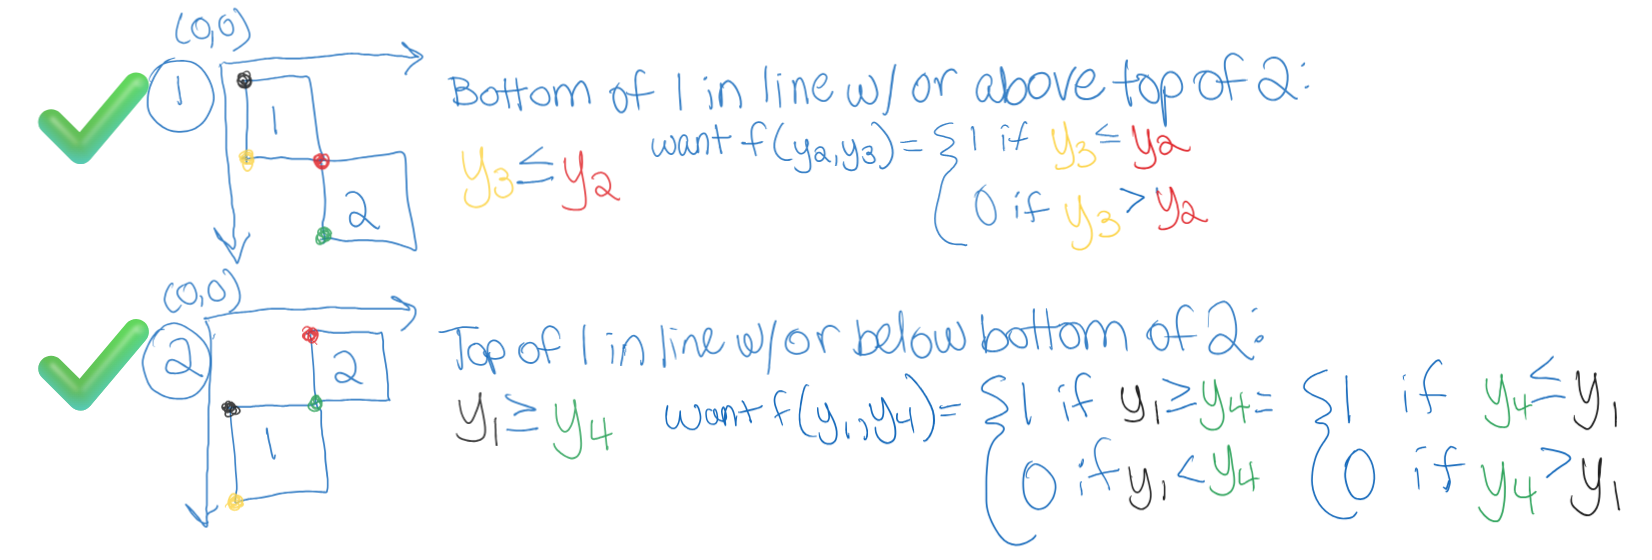 (0,0)
1
1
2
Bottom of 1 in line w/ or above top of 2:
y3 ≤ y2
want f(y2,y3) = { 1 if y3 ≤ y2
0 if y3 > y2
(0,0)
2
2
1
Top of 1 in line w/ or below bottom of 2:
y1 ≥ y4
want f(y1,y4) = { 1 if y1 ≥ y4 = { 1 if y4 ≤ y1
0 if y1 < y4 0 if y4 > y1